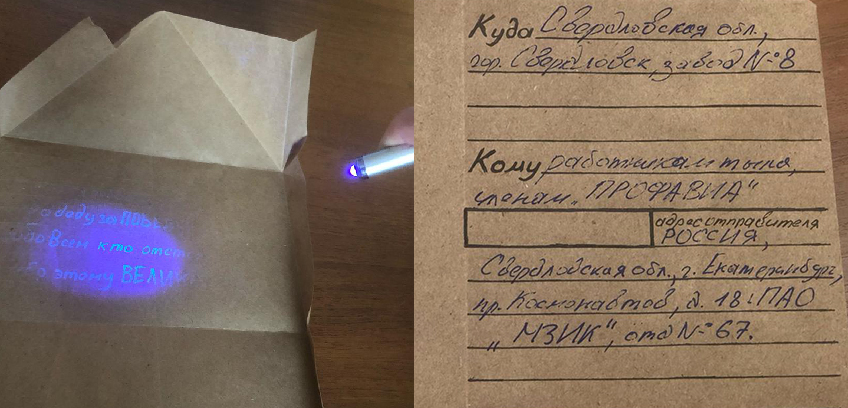 деду за ПОБЕ
всем кто отст
этому ВЕЛИ
Куда Свердловская обл.,
гор. Свердловск, завод №8
Кому работникам тыла,
членам „ПРОФАВИА“
адрес отправителя
РОССИЯ,
Свердловская обл., г. Екатеринбург,
пр. Космонавтов, д. 18: ПАО
„МЗИК“, отд №67.